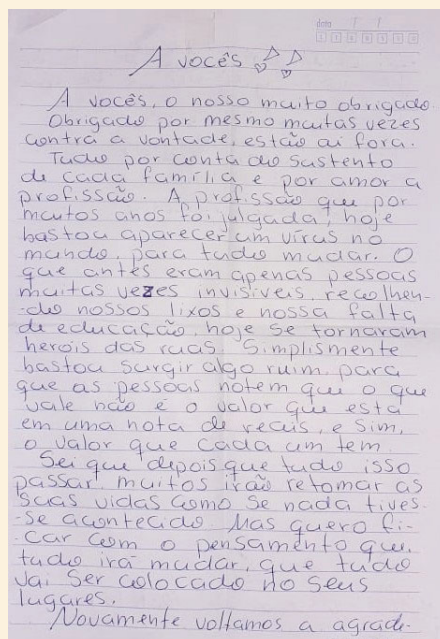 data / /
A vocês !!
A vocês, o nosso muito obrigado.
Obrigado por mesmo muitas vezes
contra a vontade, estão aí fora.
Tudo por conta do sustento
de cada família e por amor a
profissão. A profissão que por
muitos anos foi julgada, hoje
bastou aparecer um vírus no
mundo, para tudo mudar. O
que antes eram apenas pessoas
muitas vezes invisíveis, recolhen-
-do nossos lixos e nossa falta
de educação, hoje se tornaram
herois das ruas. Simplismente
bastou surgir algo ruim, para
que as pessoas notem que o que
vale não é o valor que está
em uma nota de reais, e sim,
o valor que cada um tem.
Sei que depois que tudo isso
passar, muitos irão retomar as
suas vidas como se nada tives-
-se acontecido. Mas quero fi-
-car com o pensamento que,
tudo irá mudar, que tudo
vai ser colocado no seus
lugares.
Novamente voltamos a agrade-